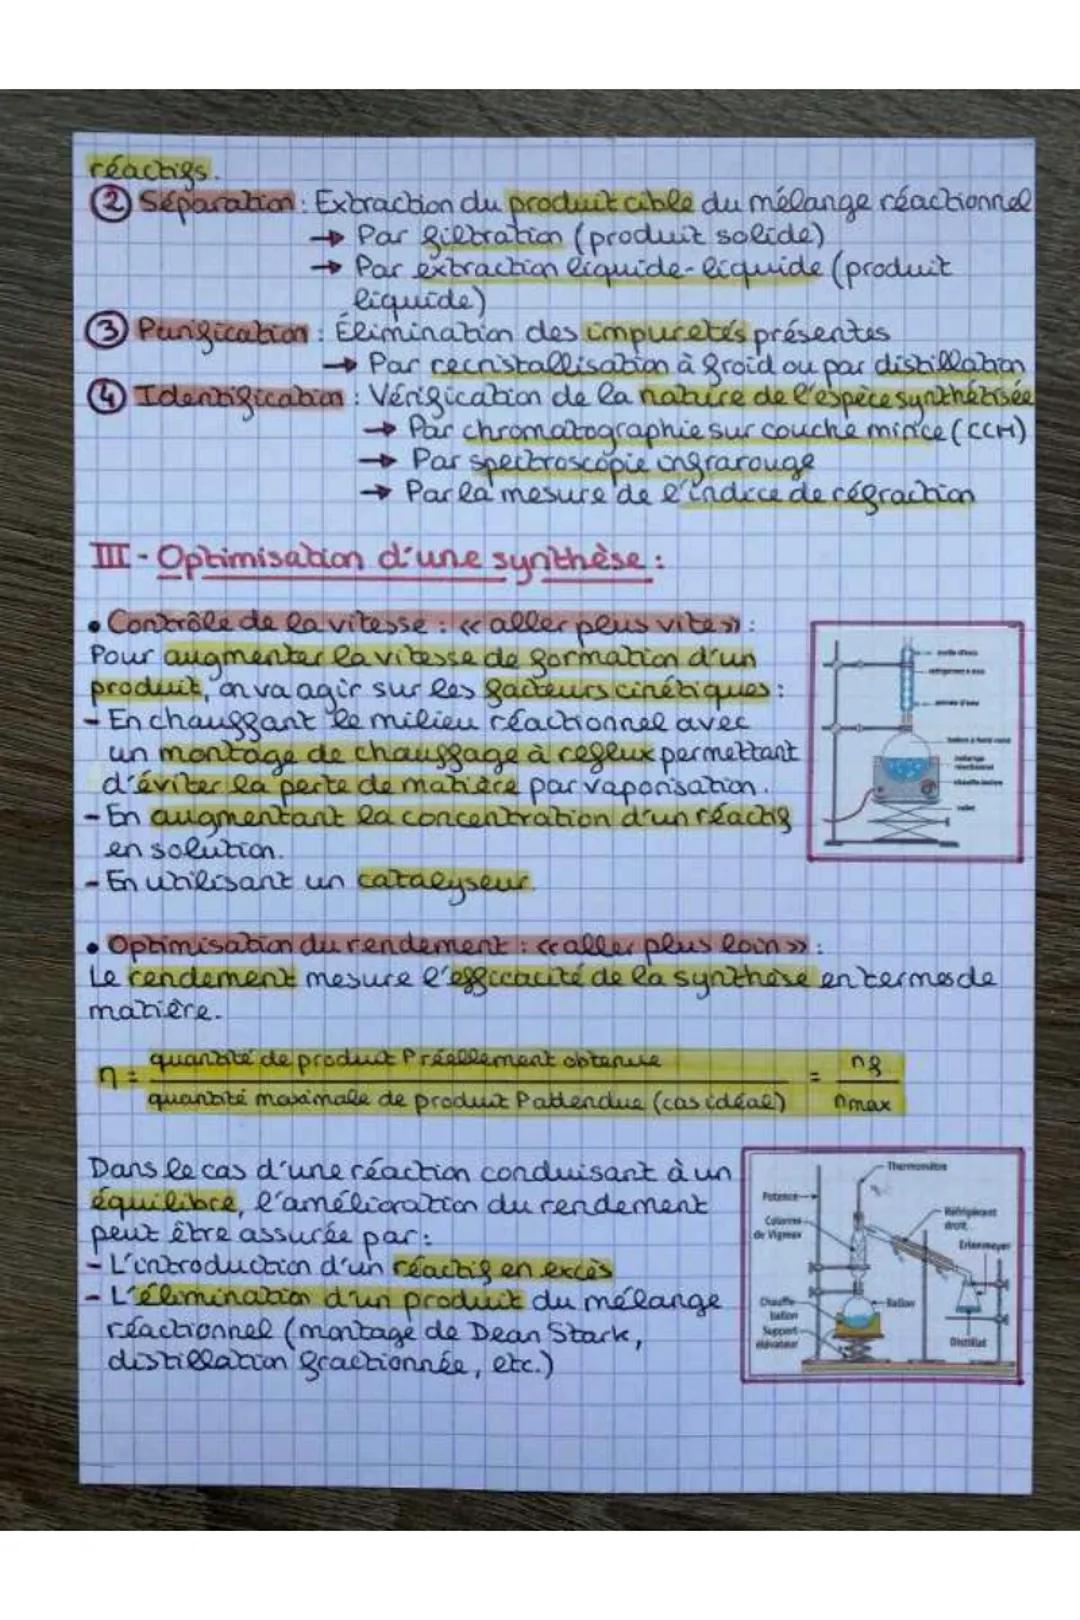 réactifs.
② Séparation : Extraction du produit cible du mélange réactionnel
→ Par filtration (produit solide)
→ Par extraction liquide-liquide (produit
liquide)
③ Purification : Élimination des impuretés présentes
→ Par recristallisation à froid ou par distillation
④ Identification : Vérification de la nature de l'espèce synthétisée
→ Par chromatographie sur couche mince (CCM)
→ Par spectroscopie infrarouge
→ Par la mesure de l'indice de réfraction
III - Optimisation d'une synthèse :
• Contrôle de la vitesse : « aller plus vite » :
Pour augmenter la vitesse de formation d'un
produit, on va agir sur les facteurs cinétiques :
- En chauffant le milieu réactionnel avec
un montage de chauffage à reflux permettant
d'éviter la perte de matière par vaporisation.
- En augmentant la concentration d'un réactif
en solution.
- En utilisant un catalyseur.
sortie d'eau
réfrigérant à eau
arrivée d'eau
ballon à fond rond
mélange
réactionnel
chauffe-ballon
valet
• Optimisation du rendement : « aller plus loin » :
Le rendement mesure l'efficacité de la synthèse en termes de
matière.
η = quantité de produit P réellement obtenue / quantité maximale de produit P attendue (cas idéal) = nf / nmax
Dans le cas d'une réaction conduisant à un
équilibre, l'amélioration du rendement
peut être assurée par :
- L'introduction d'un réactif en excès
- L'élimination d'un produit du mélange
réactionnel (montage de Dean Stark,
distillation fractionnée, etc.)
Thermomètre
Potence
Colonne
de Vigreux
Réfrigérant
droit
Erlenmeyer
Chauffe-
ballon
Ballon
Support
élévateur
Distillat